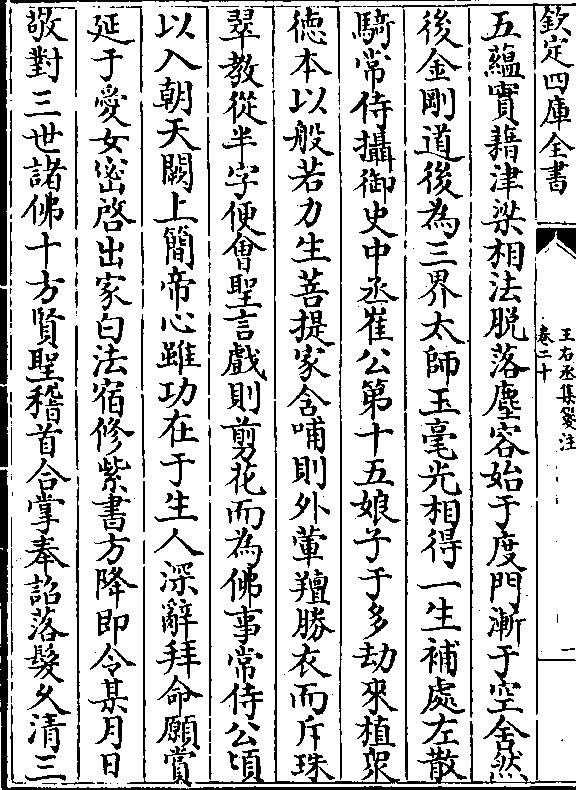 欽定四庫全書
王右丞集箋注
卷二十
一
五蘊實藉津梁相法脱落塵容始于度門漸于空舍然
後金剛道後為三界太師玉毫光相得一生補處左散
騎常侍攝御史中丞崔公第十五娘子于多劫來植衆
徳本以般若力生菩提家含哺則外葷羶勝衣而斥珠
翠教從半字便會聖言戲則剪花而為佛事常侍公頃
以入朝天闕上簡帝心雖功在于生人深辭拜命願賞
延于愛女密啓出家白法宿修紫書方降即令某月日
敬對三世諸佛十方賢聖稽首合掌奉詔落髮久清三